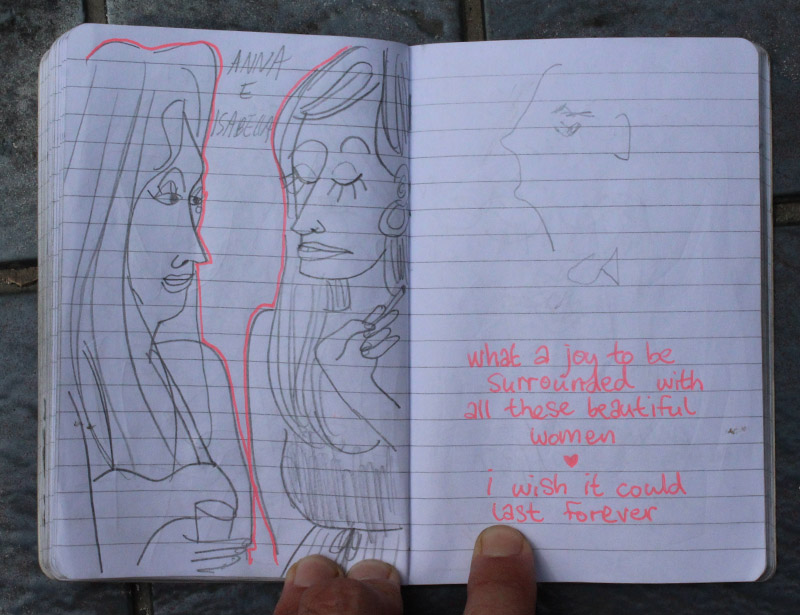 ANNA
E
ISABELLA
what a joy to be
surrounded with
all these beautiful
women
i wish it could
last forever